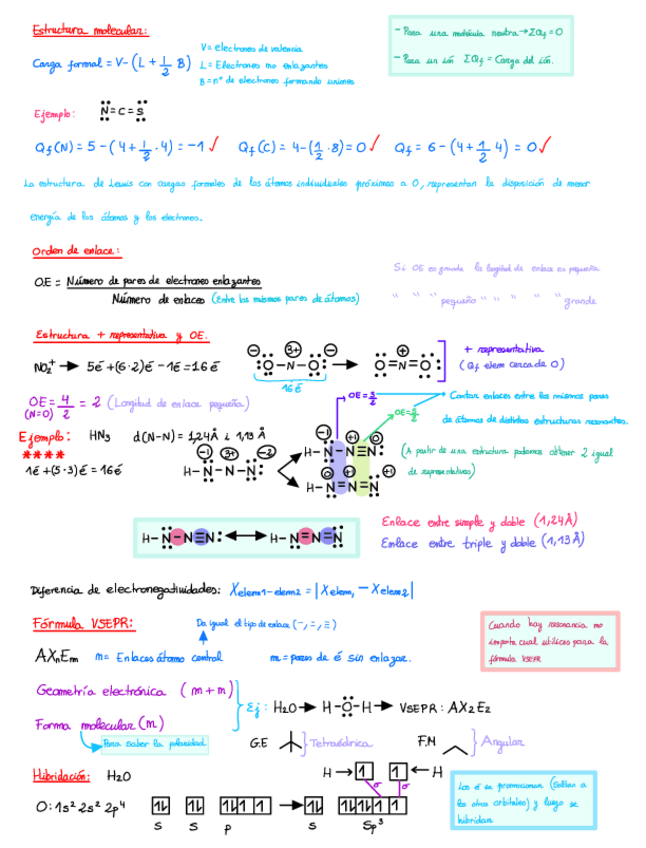 Estructura molecular:
- Para una molécula neutra → ΣQf = 0
- Para un ión ΣQf = Carga del ión.
V = electrones de valencia
Carga formal = V - (L + 1/2 B)
L = Electrones no enlazantes
B = nº de electrones formando uniones
Ejemplo: N=C=S
Qf(N) = 5 - (4 + 1/2 · 4) = -1 ✓ Qf(C) = 4 - (1/2 · 8) = 0 ✓ Qf = 6 - (4 + 1/2 4) = 0 ✓
La estructura de Lewis con cargas formales de los átomos individuales próximas a 0, representan la disposición de menor
energía de los átomos y los electrones.
Orden de enlace:
O.E = Número de pares de electrones enlazantes
Número de enlaces (Entre los mismos pares de átomos)
Si OE es grande la longitud de enlace es pequeña
" " " pequeño " " " " " grande
Estructura + representativa y OE.
NO2+ → 5é + (6·2)é - 1é = 16é
- 3+ -
:O-N-O: → O=N=O
+
16é
+ representativa
(Qf elem cerca de 0)
OE = 4/2 = 2 (Longitud de enlace pequeña)
(N=O)
OE = 3/2
OE = 5/2
Contar enlaces entre los mismos pares
de átomos de distintas estructuras resonantes.
Ejemplo: HN3 d(N-N) = 1,24Å i 1,13 Å
****
1é + (5·3)é = 16é
-1 3+ -2
H-N-N-N:
-1 +1 0
H-N-N≡N:
0 +1 -1
H-N=N=N
(A partir de una estructura podemos obtener 2 igual
de representativas)
H-N-N≡N: ↔ H-N=N=N
Enlace entre simple y doble (1,24Å)
Enlace entre triple y doble (1,13Å)
Diferencia de electronegatividades: Xelem1-elem2 = |Xelem1 - Xelem2|
Fórmula VSEPR:
Da igual el tipo de enlace (-, =, ≡)
AXnEm n= Enlaces átomo central m= pares de é sin enlazar.
Cuando hay resonancia no
importa cual utilices para la
fórmula VSEPR
Geometría electrónica (n+m)
Ej: H2O → H-O-H → VSEPR: AX2E2
Forma molecular (n)
Para saber la polaridad
G.E Tetraédrica F.M Angular
Hibridación: H2O
H → 1 1 ← H
σ σ
O: 1s² 2s² 2p⁴
1l 1l 1l 1 1 → 1l 1l 1l 1 1
s s p s sp³
Los é se promocionan (saltan a
los otros orbitales) y luego se
hibridan